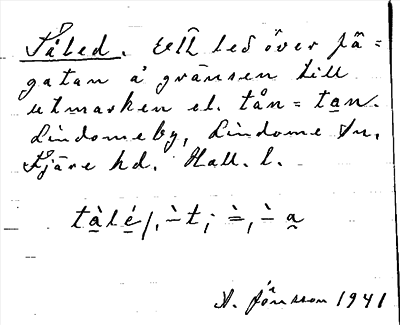 Tåled. Ett led över fä=
gatan å gränsen till
utmarken el. tån = tan.
Lindomeby, Lindome sn,
Fjäre hd. Hall. l.
tàlé/, -̀t; =̀, -̀ a
A. Jönsson 1941